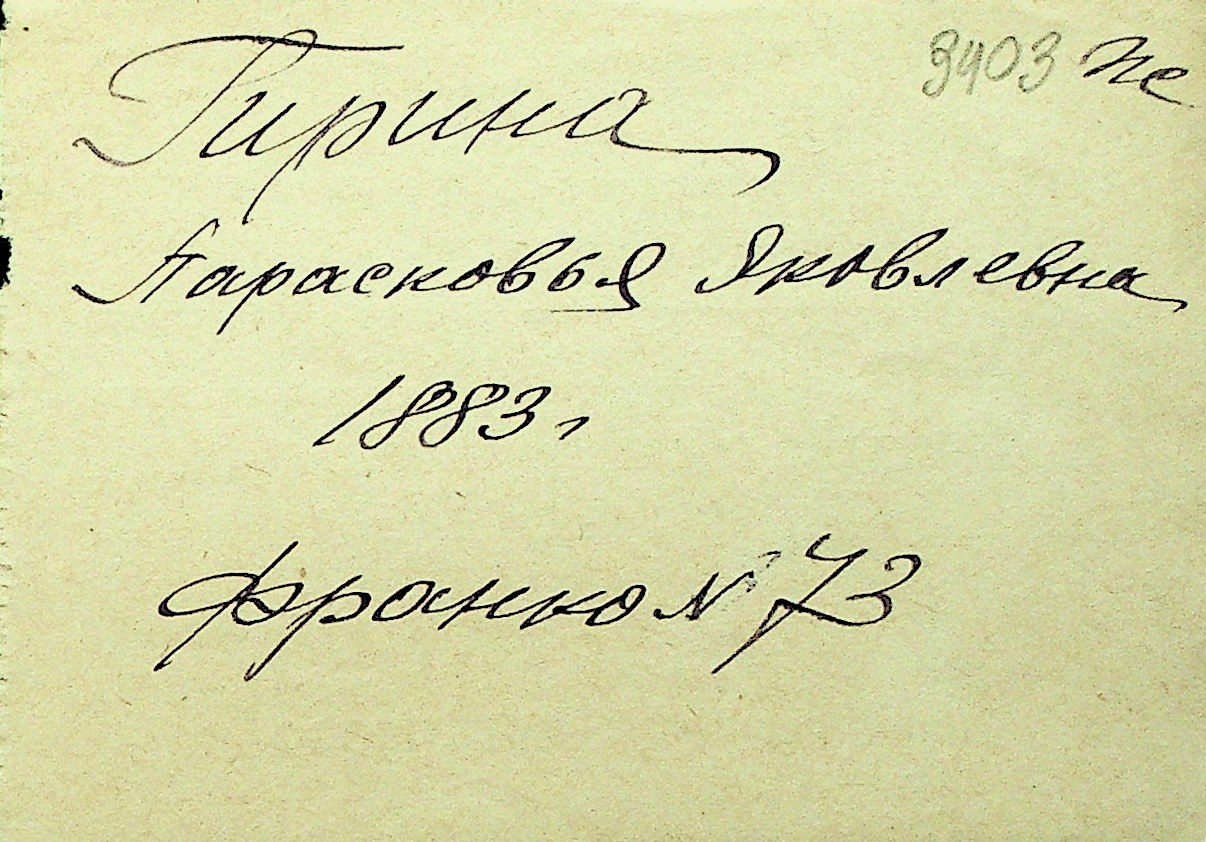 3403 не
Гирина
Парасковья Яковлевна
1883 г
Франко № 73